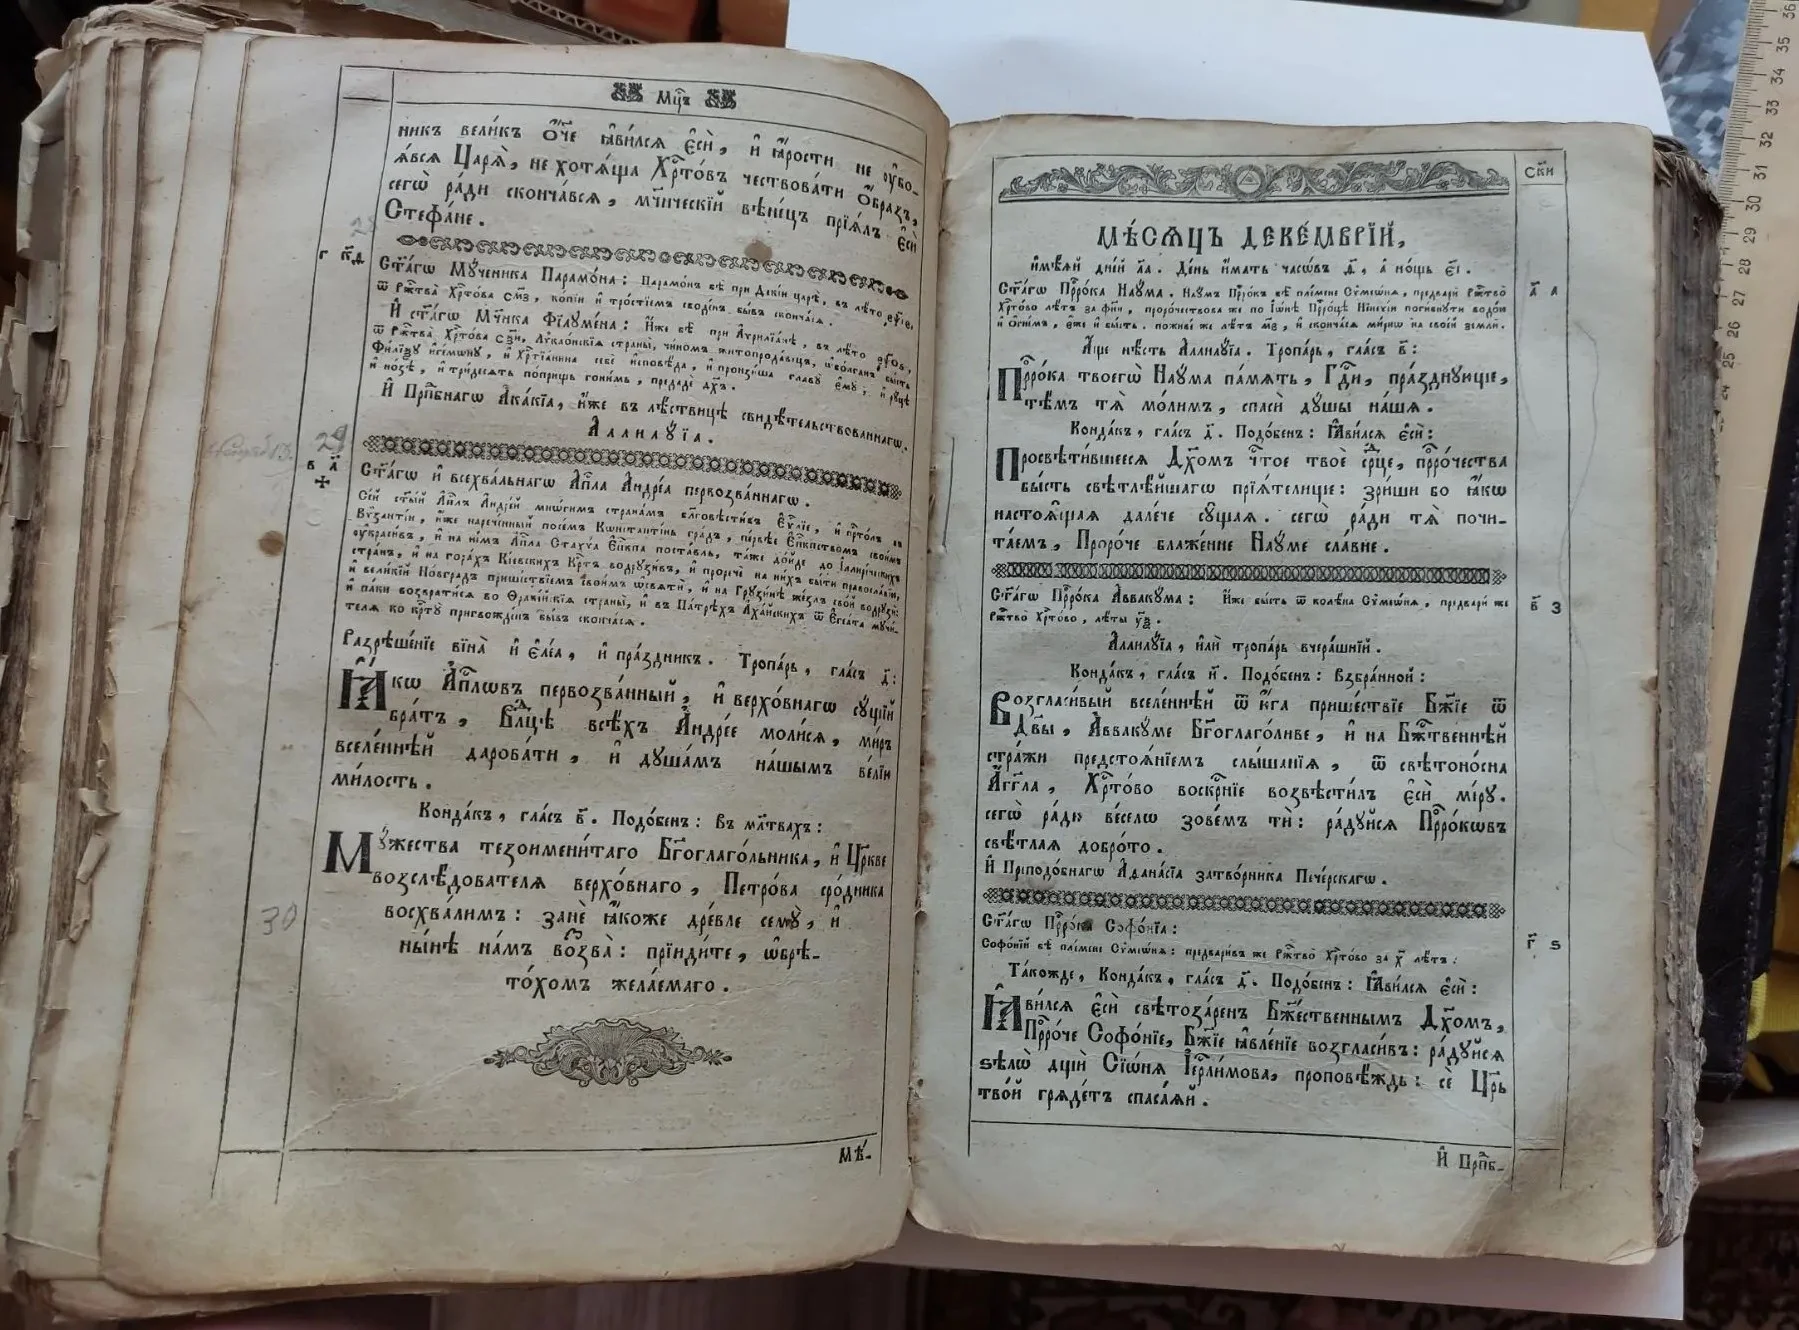 Мцъ
никъ вели́къ Ѻ҆́ч҃е ꙗ҆ви́лсѧ є҆сѝ, и҆ ꙗ҆́рости не ᲂу҆бо-
ѧ́всѧ Царѧ̀, не хотѧ́ща Хрⷭ҇то́въ че́ствовати Ѻ҆́бразъ,
сегѡ̀ ра́ди сконча́всѧ, мч҃ническїй вѣне́цъ прїѧ́лъ є҆сѝ
Стефа́не.
г к҃д
Ст҃а́гѡ Мꙋ́ченика Парамо́на: Парамо́нъ бѣ̀ при Де́кїи царѣ̀, въ лѣ́то
ѿ Ржⷭ҇тва̀ Хрⷭ҇то́ва с҃м҃з, ко́пїи и҆ тро́стїемъ сводє́нъ бы́въ сконча́сѧ.
И҆ ст҃а́гѡ Мч҃ника Фїлꙋме́на: И҆́же бѣ̀ при А҆ѵрилїа́нѣ, въ лѣ́то
Фили́ѯꙋ и҆ге́мѡнꙋ, и҆ Хрⷭ҇тїа́нина себѐ и҆сповѣ́да, и҆ пронзи́ша главꙋ̀ є҆мꙋ̀, и҆ рꙋ́цѣ
и҆ но́зѣ, и҆ три́десѧть по́прищь гони́мь, предадѐ дх҃ъ.
И҆ Прпⷣбнагѡ А҆ка́кїа, и҆́же въ лѣ́ствицѣ свидѣ́тельствованнагѡ.
А҆ллилꙋ́їа.
29
в л҃
Ст҃а́гѡ и҆ всехва́льнагѡ А҆пⷭ҇ла А҆ндре́а первозва́ннагѡ.
Се́й ст҃ы́й А҆пⷭ҇лъ А҆ндре́й мнѡ́гимъ страна́мъ бл҃говѣсти́въ Є҆ѵⷢ҇лїе, и҆ прⷭ҇то́лъ въ
Вѷзанті́и, и҆́же нарече́нный пото́мъ Кѡнстанті́нь гра́дъ, пе́рвѣе Є҆пⷭ҇кпствомъ свои́мъ
ᲂу҆краси́въ, и҆ на не́мъ А҆пⷭ҇ла Ста́хꙋа Є҆пⷭ҇кпа поста́вль, та́же до́йде до І҆ллирі́ческихъ
стра́нъ, и҆ на гора́хъ Кі́евскихъ Крⷭ҇тъ водрꙋзи́въ, и҆ проречѐ на ни́хъ бы́ти правосла́вїю,
и҆ вели́кїй Но́вградъ прише́ствїемъ свои́мъ ѡ҆свѧтѝ, и҆ на Грꙋ́зинѣ же́злъ сво́й водрꙋзѝ:
и҆ па́ки возврати́сѧ во Ѳракі́йскїѧ страны̑, и҆ въ Па́трѣхъ А҆ха́йскихъ ѿ Є҆ге́ата мꙋчи́-
телѧ ко крⷭ҇тꙋ̀ пригвожде́нъ бы́въ сконча́сѧ.
Разрѣше́нїе вїна̀ и҆ є҆ле́а, и҆ пра́здникъ. Тропа́рь, гла́съ д҃:
Ꙗ҆́кѡ А҆пⷭ҇лѡвъ первозва́нный, и҆ верхо́внагѡ сꙋ́щїй
бра́тъ, Влⷣцѣ всѣ́хъ А҆ндре́е моли́сѧ, ми́ръ
вселе́ннѣй дарова́ти, и҆ дꙋша́мъ на́шымъ ве́лїи
ми́лость.
Конда́къ, гла́съ в҃. Подо́бенъ: Въ мл҃твахъ:
Мꙋ́жества тезоимени́таго Бг҃оглаго́льника, и҆ Цр҃кве
возслѣ́дователѧ верхо́внаго, Петро́ва сро́дника
восхва́лимъ: занѐ ꙗ҆́коже дре́вле семꙋ̀, и҆
ны́нѣ на́мъ воззва̀: прїиди́те, ѡ҆брѣ-
то́хомъ жела́емаго.
30
Мѣ́-
ск҃и
МѢ́СѦЦЪ ДЕКЕ́МВРЇЙ,
и҆мѣ́ѧй дні́й л҃а. Де́нь и҆́мать часѡ́въ д҃, а҆ но́щь є҃і.
а҃ А
Ст҃а́гѡ Прⷪ҇ро́ка Наꙋ́ма. Наꙋ́мъ Прⷪ҇ро́къ бѣ̀ пле́мене Сѷмеѡ́нѧ, предварѝ Ржⷭ҇тво̀
Хрⷭ҇то́во лѣ́тъ за ф҃п҃и, проро́чествова же по І҆ѡ́нѣ Прⷪ҇ро́цѣ Нїнеѵі́и поги́бнꙋти водо́ю
и҆ ѻ҆гне́мъ, є҆́же и҆ бы́сть. поживе́ же лѣ́тъ м҃з, и҆ сконча́сѧ ми́рнѡ на свое́й землѝ.
А҆́ще нѣ́сть А҆ллилꙋ́їа. Тропа́рь, гла́съ в҃:
Прⷪ҇ро́ка твоегѡ̀ Наꙋ́ма па́мѧть, Гдⷭ҇и, пра́зднꙋюще,
тѣ́мъ тѧ̀ мо́лимъ, спасѝ дꙋ́шы на́шѧ.
Конда́къ, гла́съ д҃. Подо́бенъ: Ꙗ҆ви́лсѧ є҆сѝ:
Просвѣти́вшеесѧ Дх҃омъ чⷭ҇тое твоѐ срⷣце, прⷪ҇ро́чества
бы́сть свѣтлѣ́йшагѡ прїѧ́телище: зри́ши бо ꙗ҆́кѡ
настоѧ́щаѧ дале́че сꙋ́щаѧ. сегѡ̀ ра́ди тѧ̀ почи-
та́емъ, Проро́че блаже́нне Наꙋ́ме сла́вне.
в҃ З
Ст҃а́гѡ Прⷪ҇ро́ка А҆ввакꙋ́ма: И҆́же бы́сть ѿ колѣ́на Сѷмеѡ́нѧ, предварѝ же
Ржⷭ҇тво̀ Хрⷭ҇то́во, лѣ́ты
А҆ллилꙋ́їа, и҆лѝ тропа́рь вчера́шнїй.
Конда́къ, гла́съ и҃. Подо́бенъ: Взбра́нной:
Возгласи́вый вселе́ннѣй ѿ ю҆́га прише́ствїе Бж҃їе ѿ
Дв҃ы, А҆ввакꙋ́ме Бг҃оглаго́ливе, и҆ на Бжⷭ҇твеннѣй
стра́жи предстоѧ́нїемъ слы́шанїѧ, ѿ свѣтоно́сна
А҆́гг҃ла, Хрⷭ҇то́во воскрⷭ҇нїе возвѣсти́лъ є҆сѝ мі́рꙋ.
сегѡ̀ ра́ди ве́селѡ зове́мъ тѝ: ра́дꙋйсѧ Прⷪ҇ро́кѡвъ
свѣ́тлаѧ добро́то.
И҆ Преподо́бнагѡ А҆ѳана́сїа затво́рника Пече́рскагѡ.
г҃ Ѕ
Ст҃а́гѡ Прⷪ҇ро́ка Софо́нїа:
Софо́нїй бѣ̀ пле́мене Сѷмеѡ́нѧ: предвари́въ же Ржⷭ҇тво̀ Хрⷭ҇то́во за х҃ лѣ́тъ:
Та́кожде, Конда́къ, гла́съ д҃. Подо́бенъ: Ꙗ҆ви́лсѧ є҆сѝ:
Ꙗ҆ви́лсѧ є҆сѝ свѣтоза́ренъ Бж҃ественнымъ Дх҃омъ,
Прⷪ҇ро́че Софо́нїе, Бж҃їе ꙗ҆вле́нїе возгласи́въ: ра́дꙋйсѧ
ѕѣлѡ̀ дщѝ Сїѡ́нѧ І҆ерⷭ҇ли́мова, проповѣ́ждь: сѐ Цр҃ь
тво́й грѧде́тъ спаса́ѧй.
И҆ Прпⷣб-